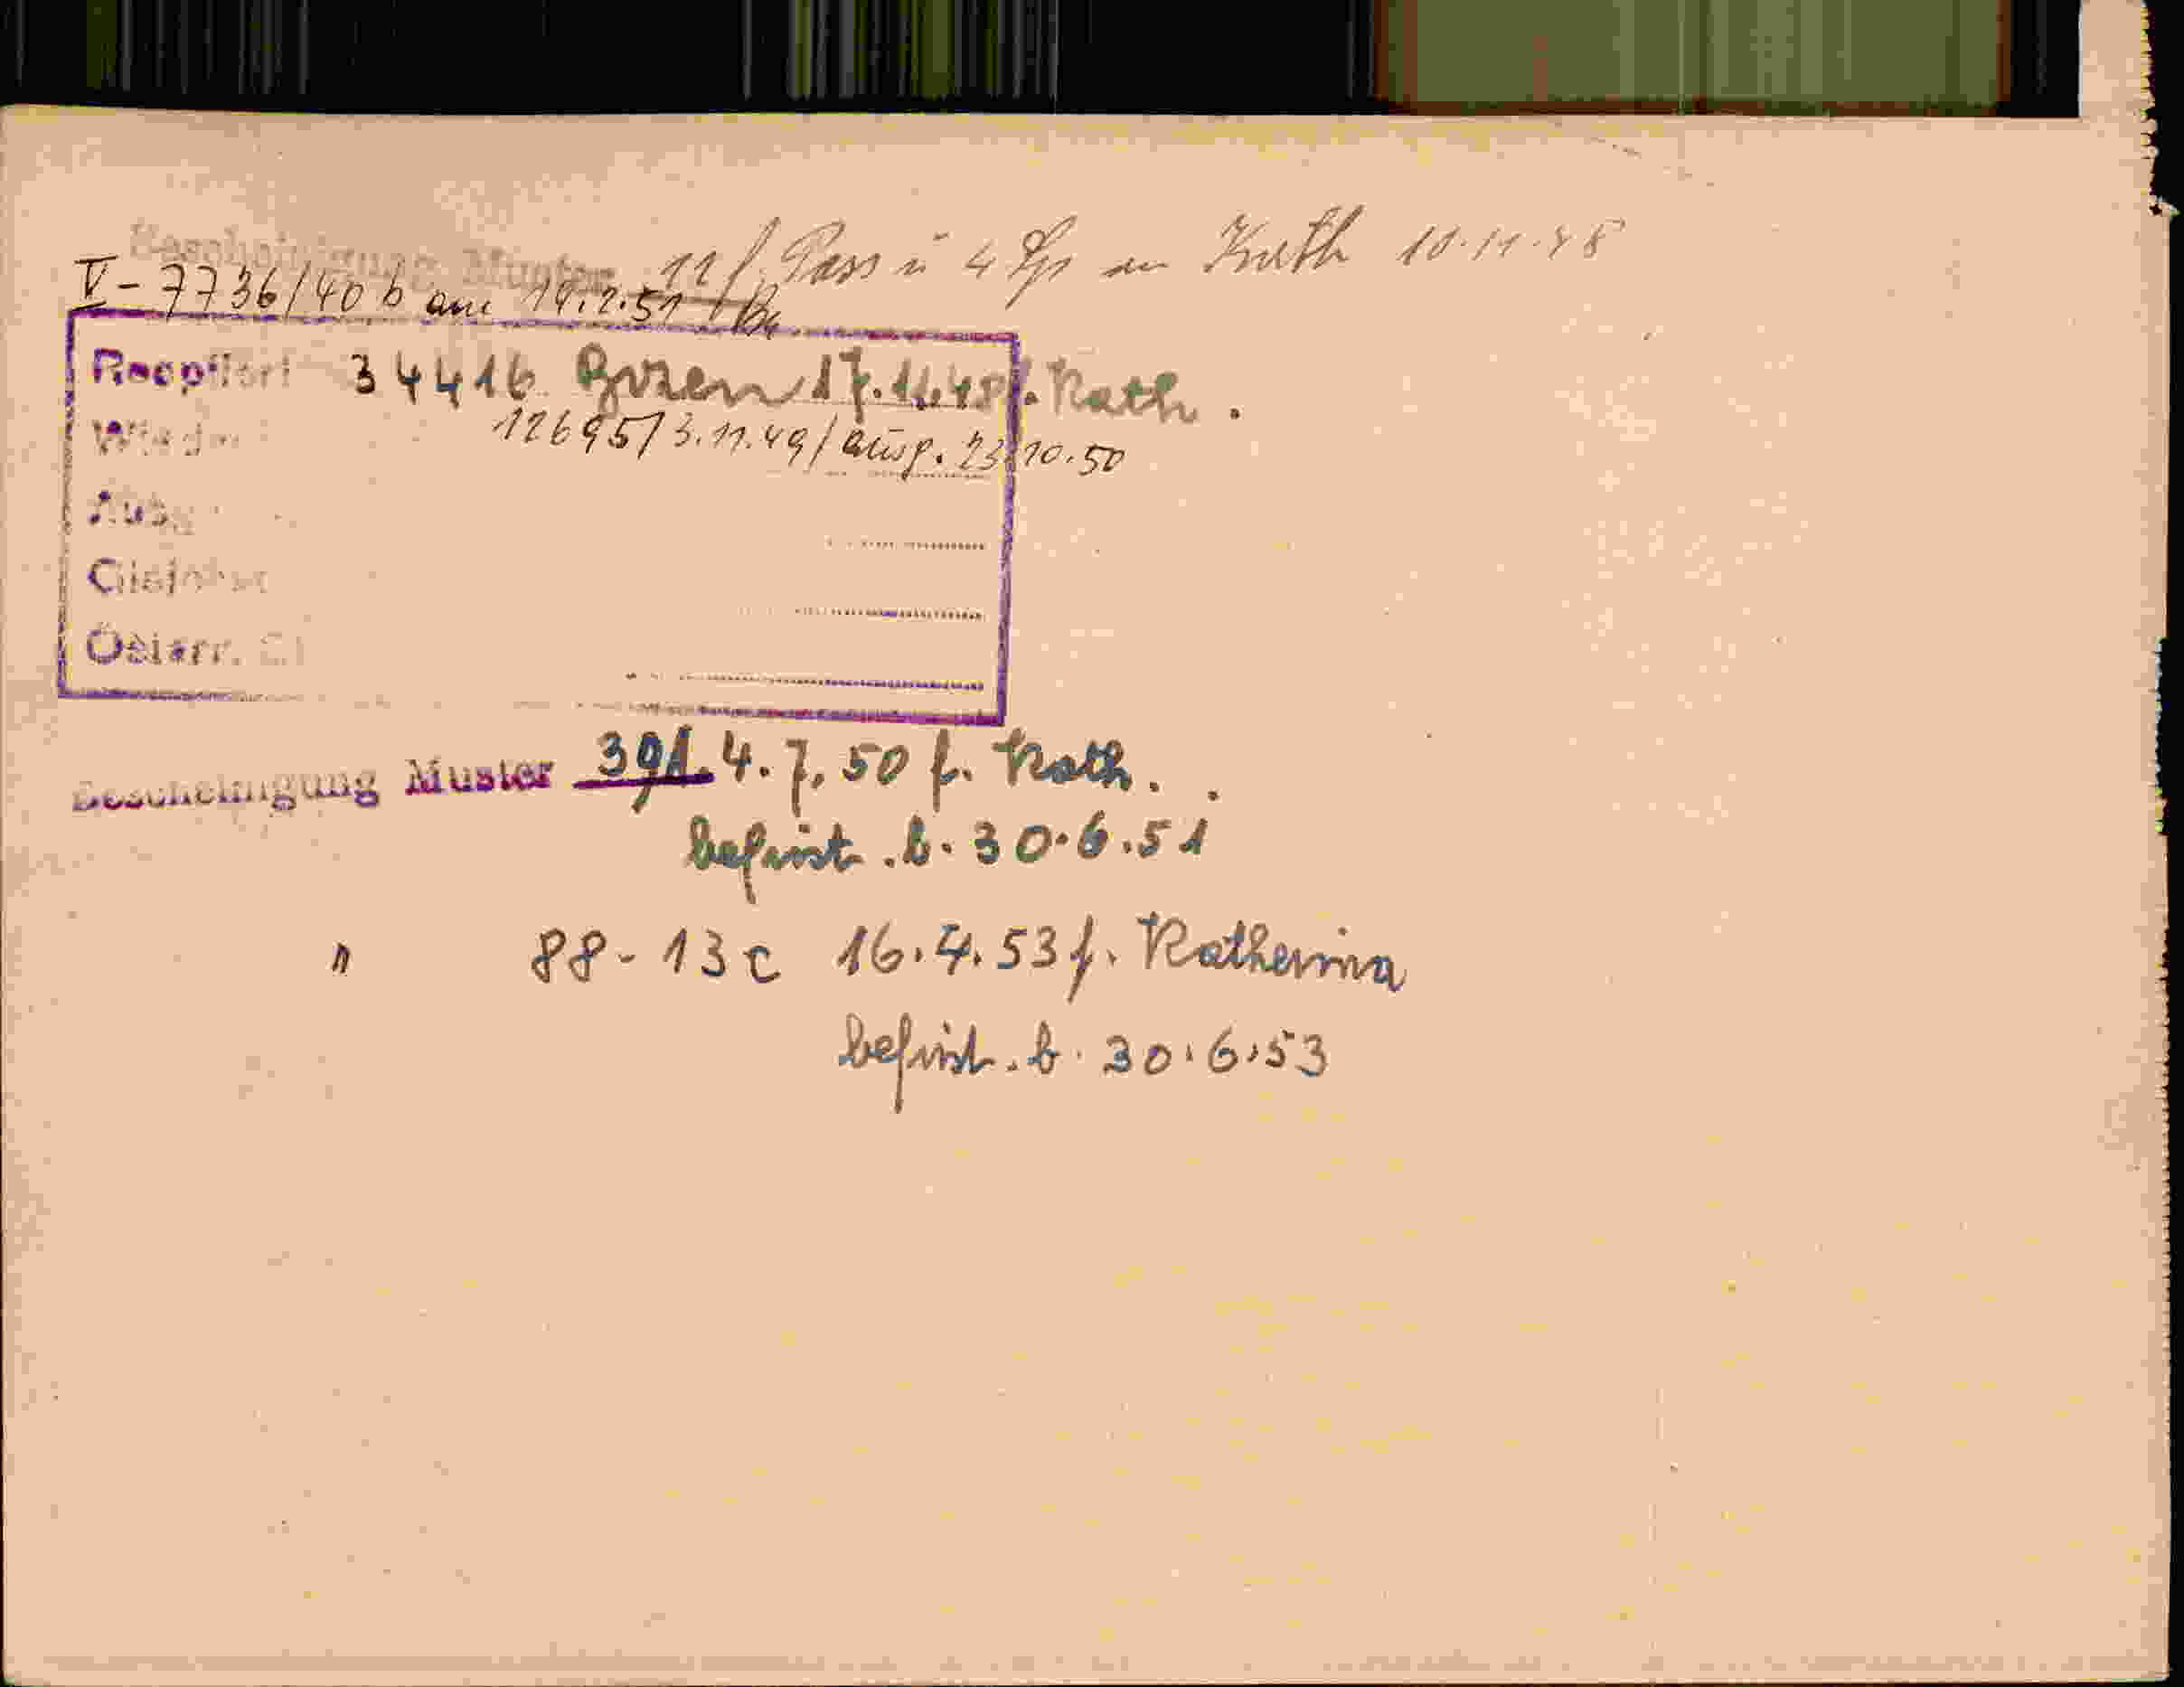 Bescheinigung Muster 11 f. Pass u 4 an Kath 10.11.48
V - 7736/40 b am 19.2.51
34416 Bozen 17.11.48 f. Kath.
12695/3.11.49/ausg. 23/10.50
Österr.
Bescheinigung Muster 391. 4.7.50 f. Kath.
befrist. b. 30.6.51
" 88-13c 16.4.53 f. Katherina
befrist. b. 30.6.53